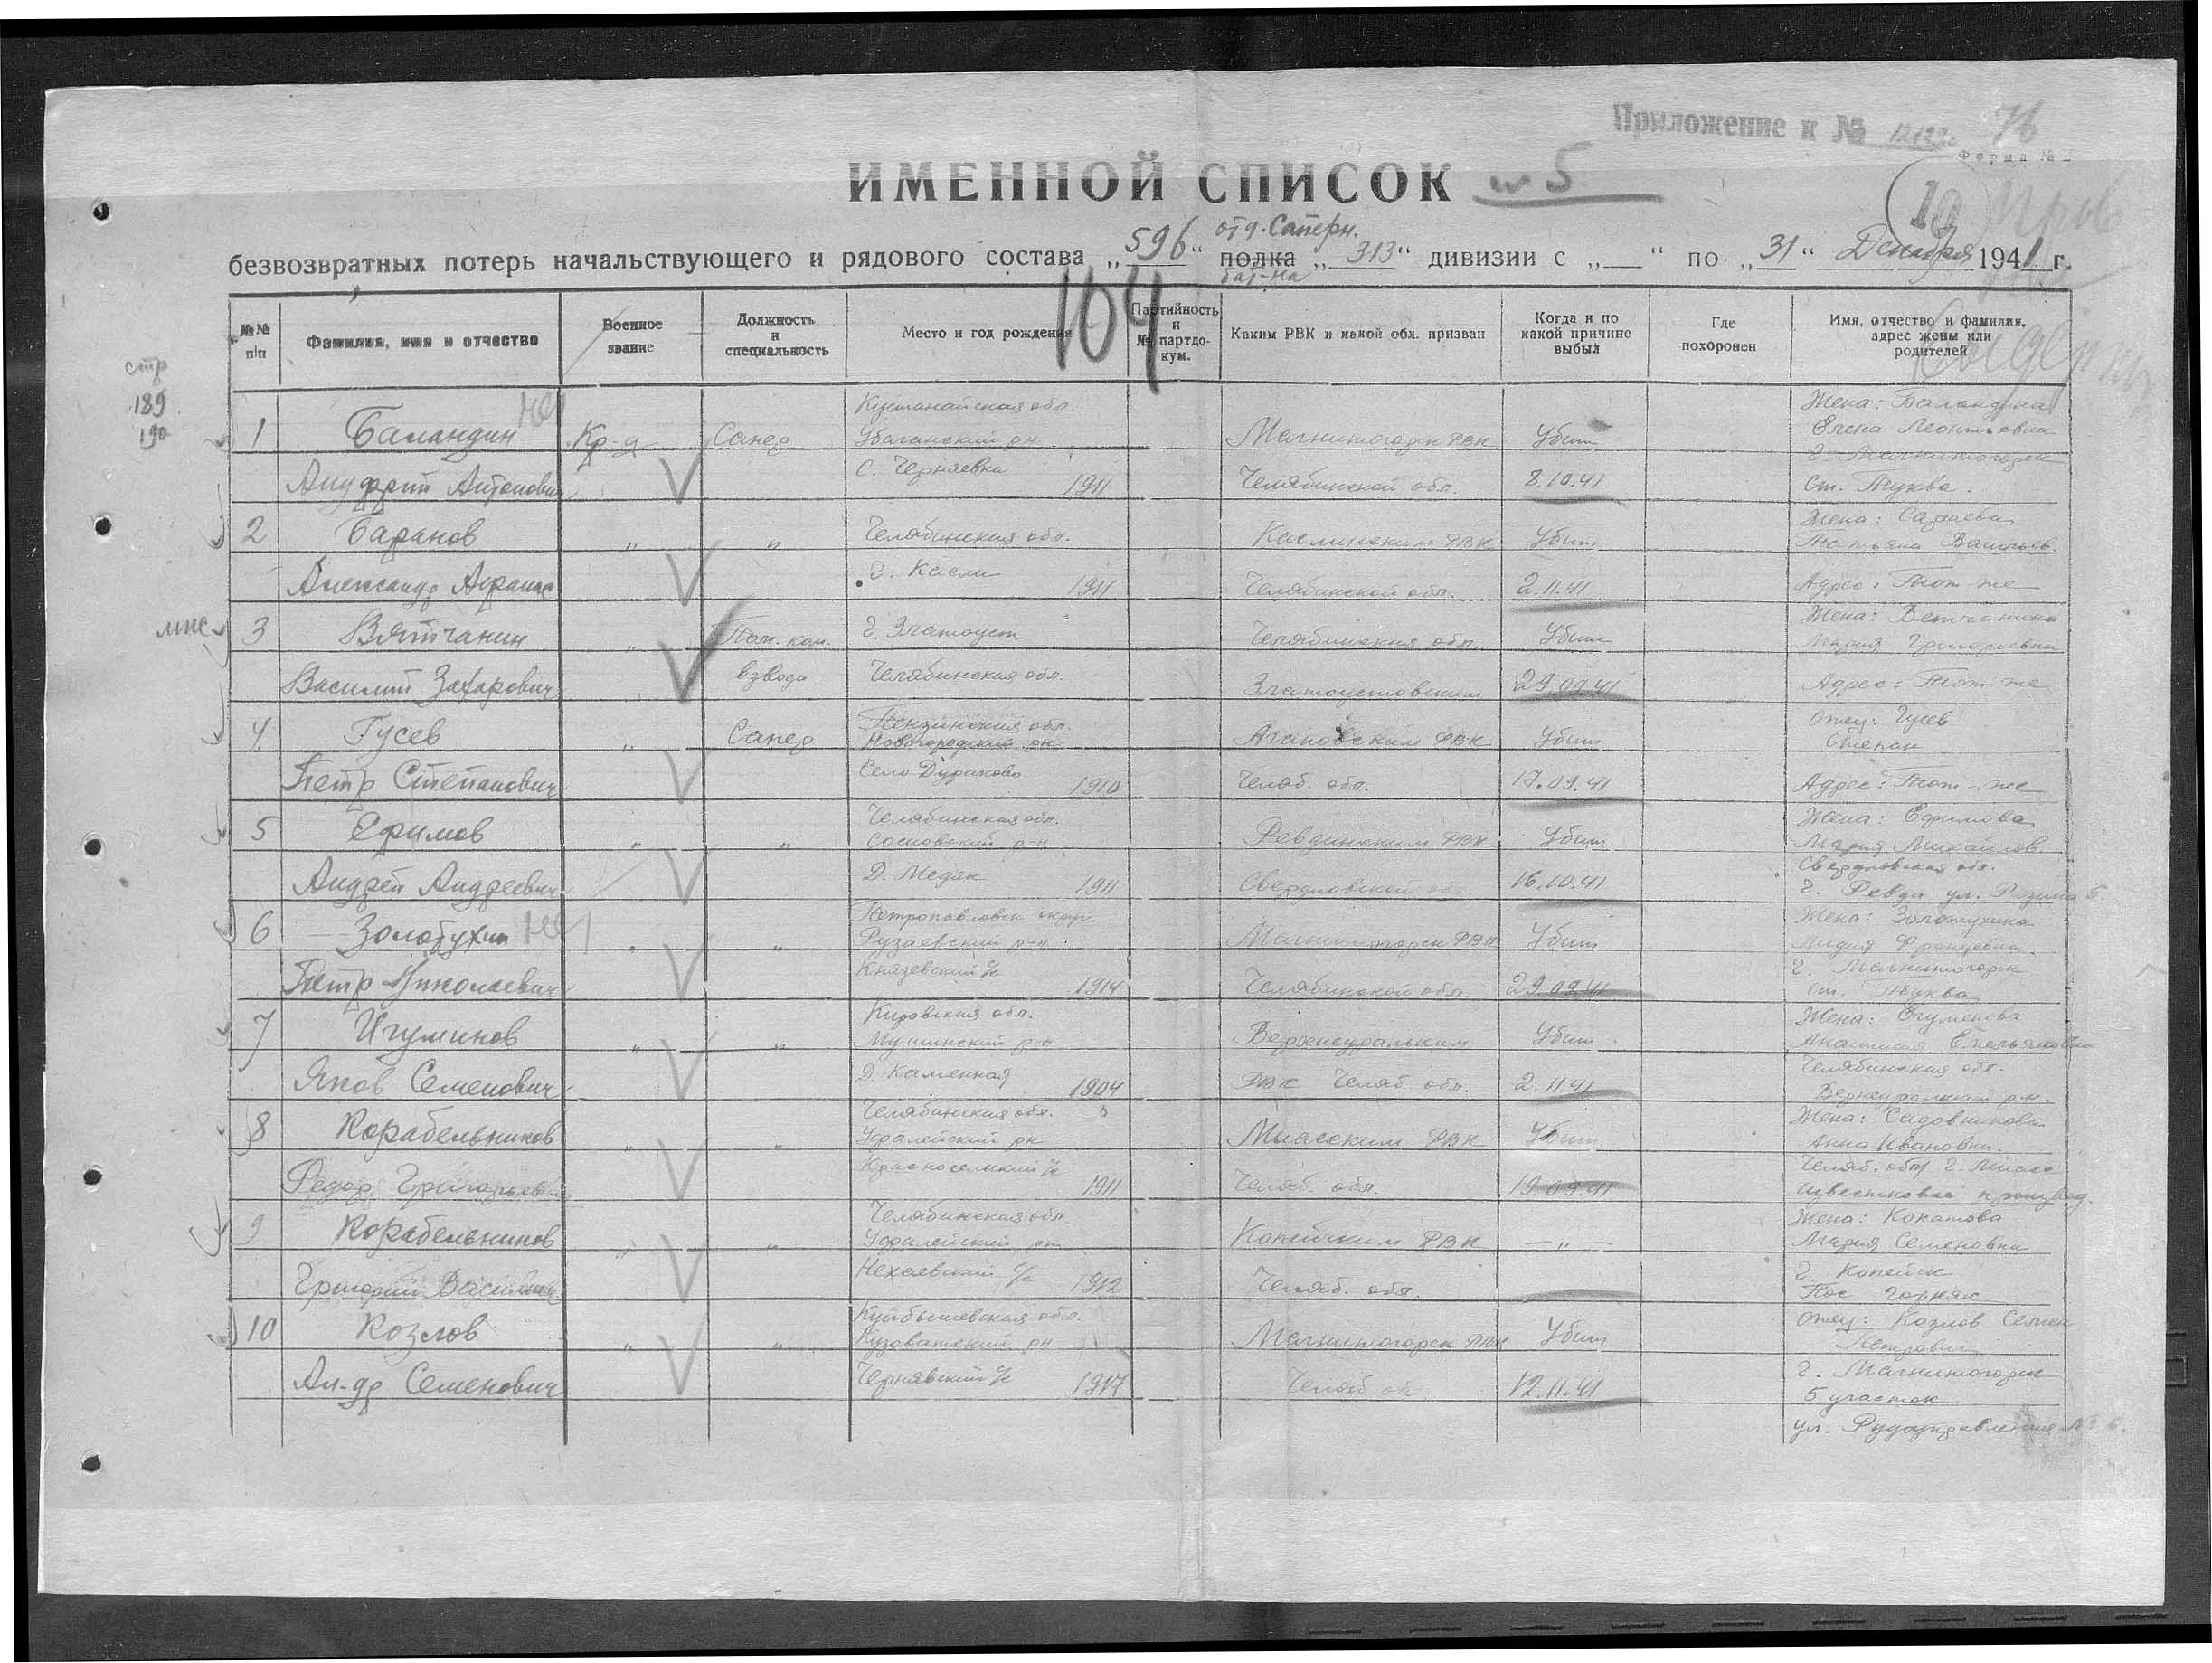 Приложение к № 76
Форма № 2
ИМЕННОЙ СПИСОК № 5
10
отд. Саперн.
безвозвратных потерь начальствующего и рядового состава „596“ полка „313“ дивизии с „—“ по „31“ Декабря 1941 г.
бат-на
104
№№ п/п
Фамилия, имя и отчество
Военное звание
Должность и специальность
Место и год рождения
Партийность и № партдокум.
Каким РВК и какой обл. призван
Когда и по какой причине выбыл
Где похоронен
Имя, отчество и фамилия, адрес жены или родителей
стр
189
190
Кустанайская обл. Жена: Баландина
1 Баландин Кр-ц Сапер Убаганский рн Магнитогорск РВК Убит Елена Леонтьевна
г. Магнитогорск
Антонович с. Черняевка 1911 Челябинской обл. 8.10.41 ст. Туква.
Жена: Сараева
2 Баранов „ „ Челябинская обл. Каслинским РВК Убит Татьяна Васильев.
Александр г. Касли 1911 Челябинской обл. 2.11.41 Адрес: Тот-же
Жена: Вятчанина
3 Вятчанин „ Пом. ком. г. Златоуст Челябинская обл. Убит Мария Григорьевна
Василий Захарович взвода Челябинская обл. Златоустовским 29.09.41 Адрес: Тот-же
Пензинская обл. Отец: Гусев
4 Гусев „ Сапер Новогородский рн Агаповским РВК Убит Степан
Петр Степанович Село Дураково 1910 Челяб. обл. 17.09.41 Адрес: Тот-же
Челябинская обл. Жена: Ефимова
5 Ефимов „ „ Сосновский р-н Ревдинским РВК Убит Мария Михайлов.
Свердловская обл.
Андрей Андреевич Д. Медяк 1911 Свердловской обл. 16.10.41 г. Ревда ул. Разина 5.
Петропавловск округ. Жена: Золотухина
6 Золотухин „ „ Рузаевский р-н Магнитогорск РВК Убит Лидия Францевна
г. Магнитогорск
Петр Николаевич Князевский с/с 1914 Челябинской обл. 29.09.41 ст. Туква
Кировская обл. Жена: Егуменова
7 Игуминов „ „ рн Верхнеуральким Убит Анастасия Емельяновна
Челябинская обл.
Яков Семенович Д. Каменная 1904 РВК Челяб обл. 2.11.41 р-н.
Челябинская обл. Жена: Садовникова
8 Корабельников „ „ Уфалейский рн Миасским РВК Убит Анна Ивановна.
Челяб. обл. г. Миасс
Федор Григорьевич Красносельский с/с 1911 Челяб. обл. 19.09.41 Известковое производ.
Челябинская обл. Жена: Кокатова
9 Корабельников „ „ Уфалейский рн Копейским РВК — „ — Мария Семеновна
г. Копейск
Григорий Васильевич с/с 1912 Челяб. обл. Пос Горняк
Куйбышевская обл. Отец: Козлов Семен
10 Козлов „ „ Кузоватский рн Магнитогорск РВК Убит Петрович
г. Магнитогорск
Ал-др Семенович Чернявский с/с 1917 Челяб об 12.11.41 5 участок
ул. Рудоуправление № 6.